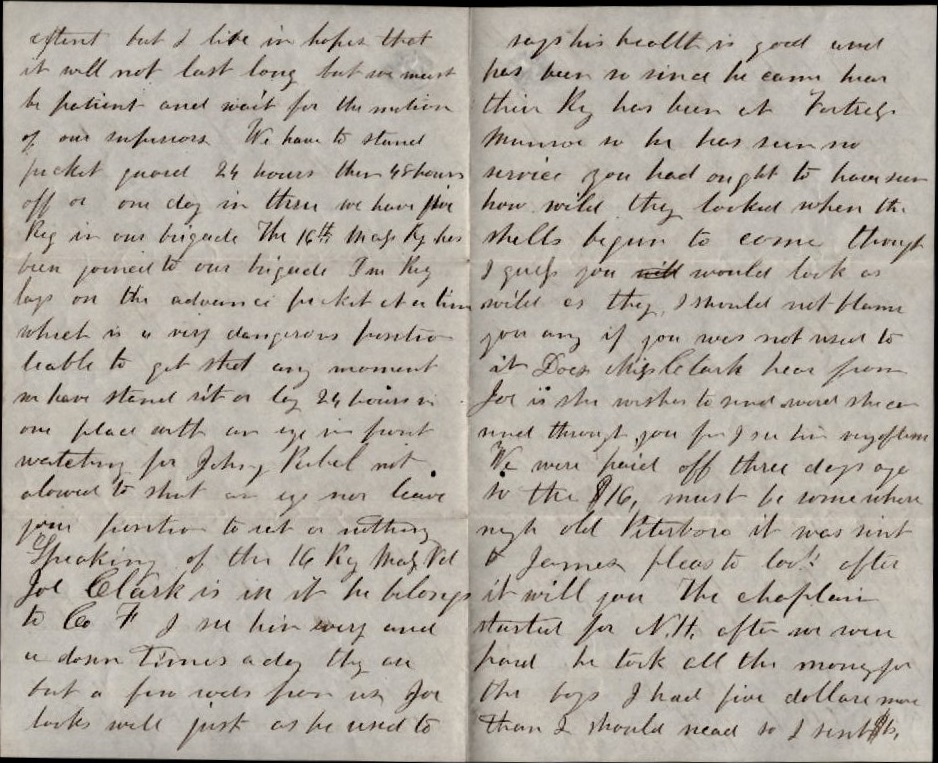 extent but I live in hopes that
it will not last long but we must
be patient and wait for the motion
of our superiors We have to stand
picket guard 24 hours then 48 hours
off or one day in three we have five
Reg in our brigade The 16th Mass Reg has
been joined to our brigade Reg
lays on the advance picket at a time
which is a very dangerous position
leable to get shot any moment
we have stand sit or lay 24 hours in
one place with an eye in front
watching for Johny Rebel not
alowed to shut an eye nor leave
your position to eat or nothing
Speaking of the 16 Reg Mass Vol
Joe Clark is in it he belongs
to Co F I see him every and
a dozn times a day they are
but a few rods from us Joe
looks well just as he used to
says his health is good and
has been so since he came hear
their Reg has been at Fortress
Munroe so he has seen no
service you had ought to have seen
how wild they looked when the
shells begun to come through
I guess you would look as
wild as they, I should not blame
you any if you was not used to
it Does Miss Clark hear from
Joe if she wishes to send word she can
send through you for I see him very often
We were paid off three days ago
so the $16, must be somewhere
nigh old Peterboro it was sent
to James pleas to look after
it will you The chaplain
started for N.H. after we were
paid he took all the money for
the boys I had five dollars more
than I should nead so I sent